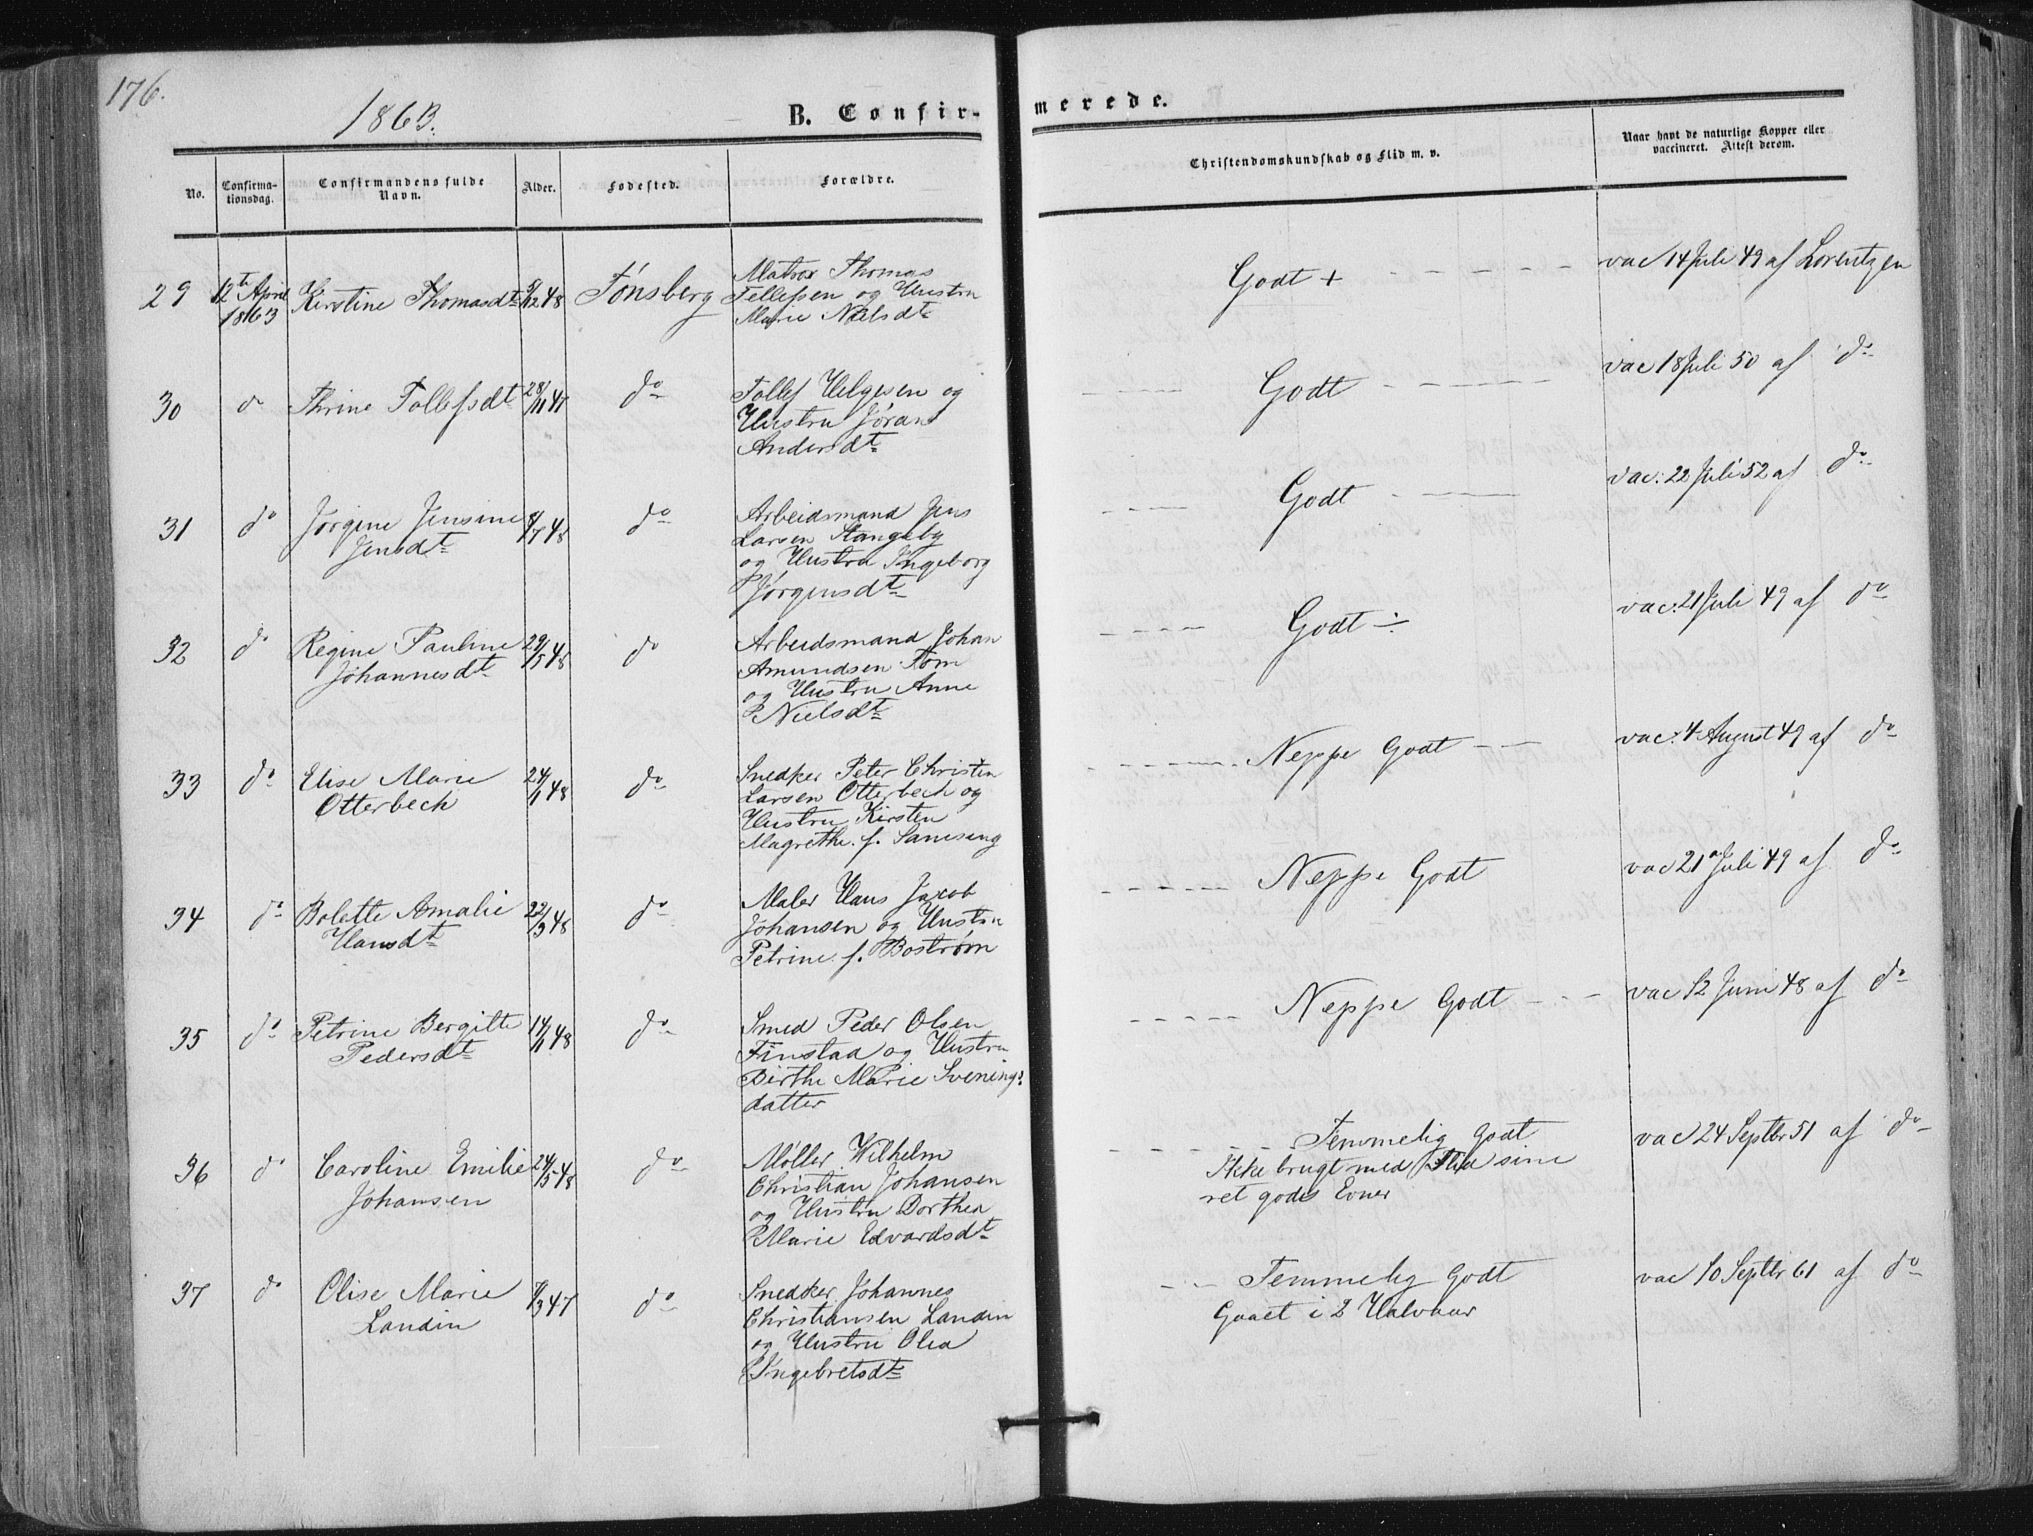 176.
1863.
B. Confirmerede.
No.
Confirmationsdag.
Confirmandens fulde Navn.
Alder.
Fødested.
Forældre.
Christendomskundskab og Flid m. v.
Naar havt de naturlige Kopper eller
vaccineret. Attest derom.
29 12te April 1863 Kirstine Thomasdt 9/12 48 Tønsberg
Matros Thomas
Tellefsen og Hustru
Marie Nielsdt
Godt + vac 14 Juli 49 af Lorentzen
30 do Thrine Tollefsdt 28/11 47 do
Tollef Helgesen og
Hustru Jøran
Andersdt
Godt vac 18 Juli 50 af do
31 do Jørgine Jensine
Jensdt 8/7 48 do
Arbeidsmand Jens
Larsen Stangeby
og Hustru Ingeborg
Jørgensdt
Godt vac: 22 Juli 52 af do
32 do Regine Pauline
Johannesdt 29/5 48 do
Arbeidsmand Johan
Amundsen Tom
og Hustru Anne
Nielsdt
Godt ÷ vac: 21 Juli 49 af do
33 do Elise Marie
Otterbech 24/1 48 do
Snedker Peter Christen
Larsen Otterbech og
Hustru Kirsten
Magrethe f.
Neppe Godt vac: 4 August 49 af do
34 do Bolette Amalie
Hansdt 22/3 48 do
Maler Hans Jacob
Johansen og Hustru
Petrine f. Bostrøm
Neppe Godt vac 21 Juli 49 af do
35 do Petrine Bergitte
Pedersdt 14/1 48 do
Smed Peder Olsen
Finstad og Hustru
Birthe Marie Svenings
datter
Neppe Godt vac 12 Juni 48 af do
36 do Caroline Emilie
Johansen 24/5 48 do
Møller Wilhelm
Christian Johansen
og Hustru Dorthea
Marie Edvardsdt
Temmelig Godt
Ikke brugt med Flid sine
ret gode Evner
vac 24 Septbr 51 af do
37 do Olise Marie
Landin 7/3 47 do
Snedker Johannes
Christiansen Landin
og Hustru Olea
Ingebretsdt
Temmelig Godt
Gaaet i 2 Halvaar
vac 10 Septbr 61 af do